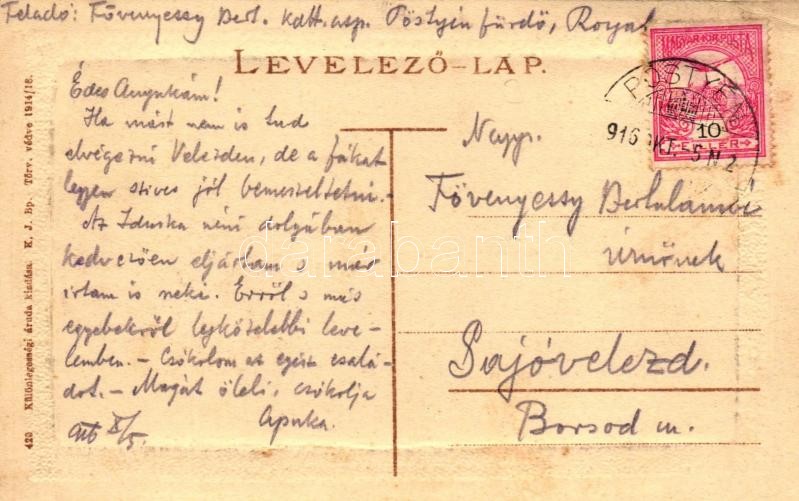 Feladó: Fövenyessy Bert. kdtt. asp. Pöstyén fürdő, Royal
LEVELEZŐ-LAP.
MAGYAR KIR. POSTA
10
FILLÉR
PÖSTYÉN
916 OKT. -5 N 2
Édes Anyukám!
Ha mást nem is tud
elvégezni Velezden, de a fákat
legyen szives jól bemeszeltetni.-
Az Iduska néni dolgában
kedvezően eljártam s már
irtam is neki. Erről s más
egyebekről legközelebbi leve-
lemben. - Csókolom az egész csalá-
dot. - Magát öleli, csókolja
Apuka.
916 X/5.
Nagys.
Fövenyessy Bertalanné
úrnőnek
Sajóvelezd.
Borsod m.
420 Különlegességi áruda kiadása. K. J. Bp. Törv. védve 1914/18.
darabanth